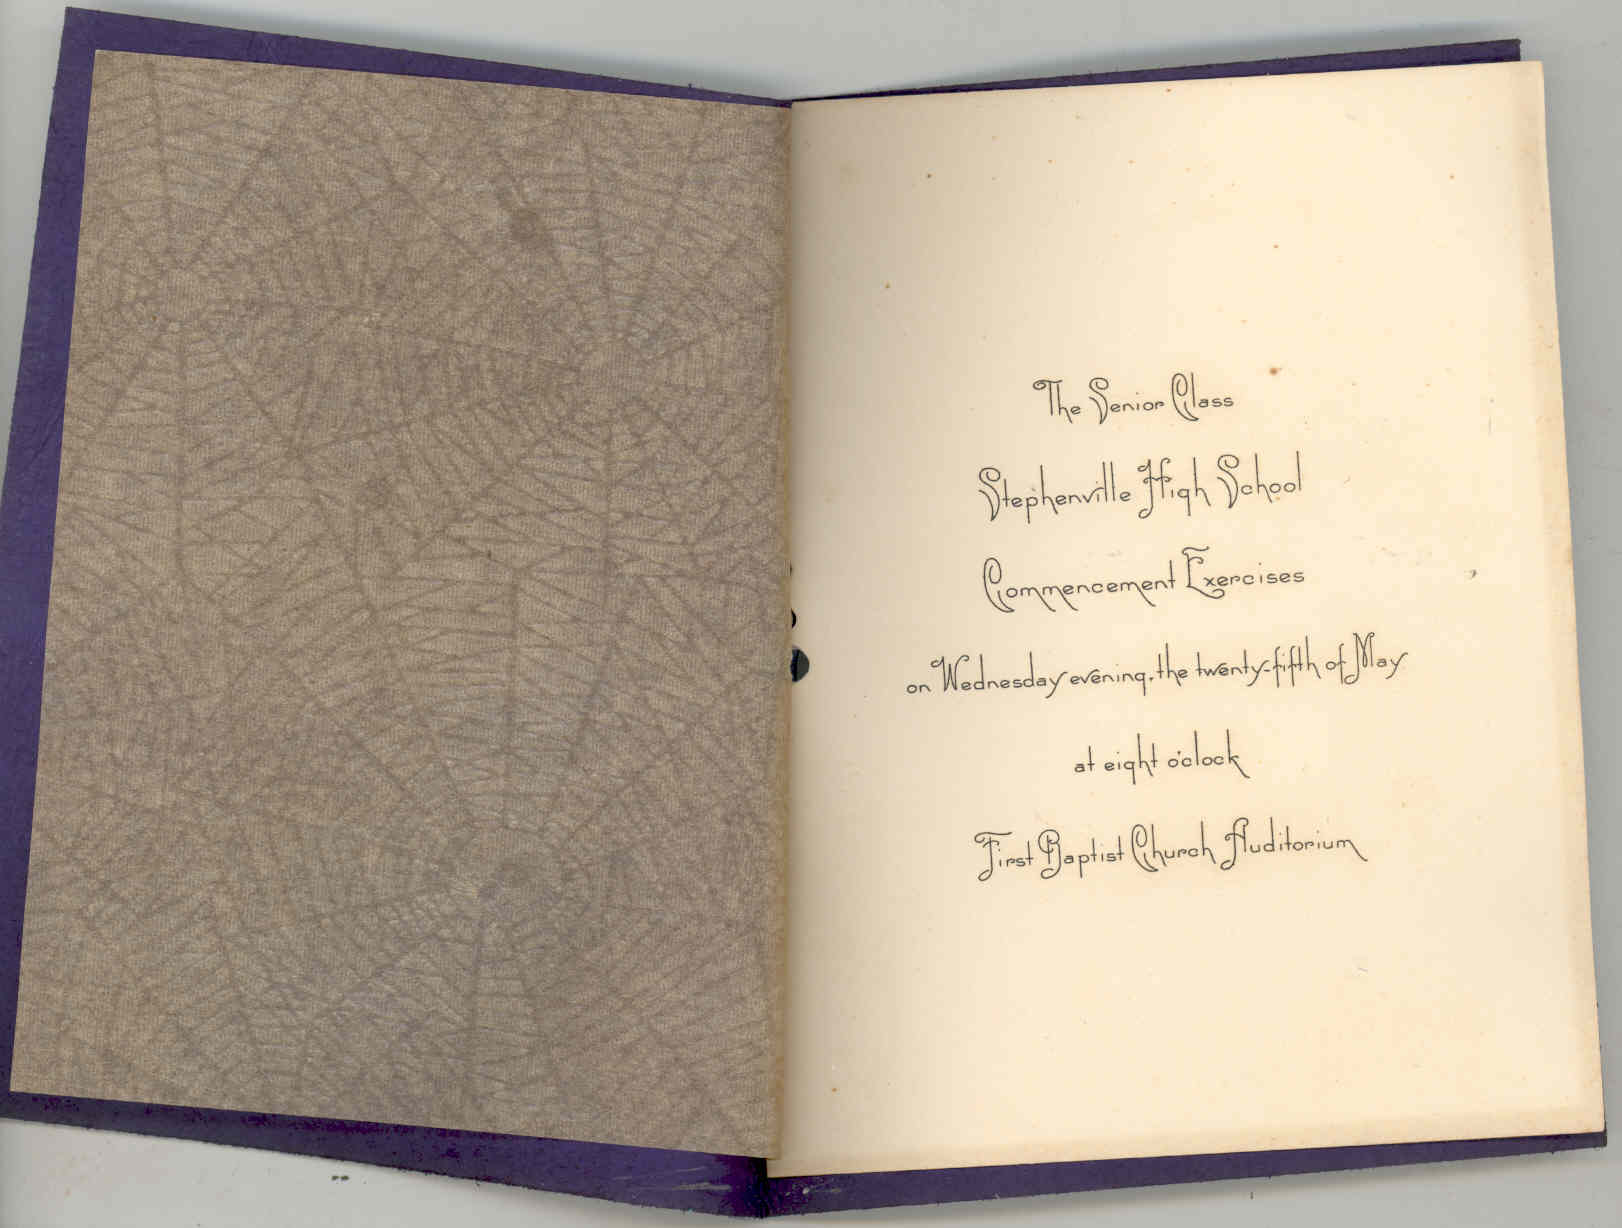 The Senior Class
Stephenville High School
Commencement Exercises
on Wednesday evening, the twenty-fifth of May
at eight o'clock
First Baptist Church Auditorium